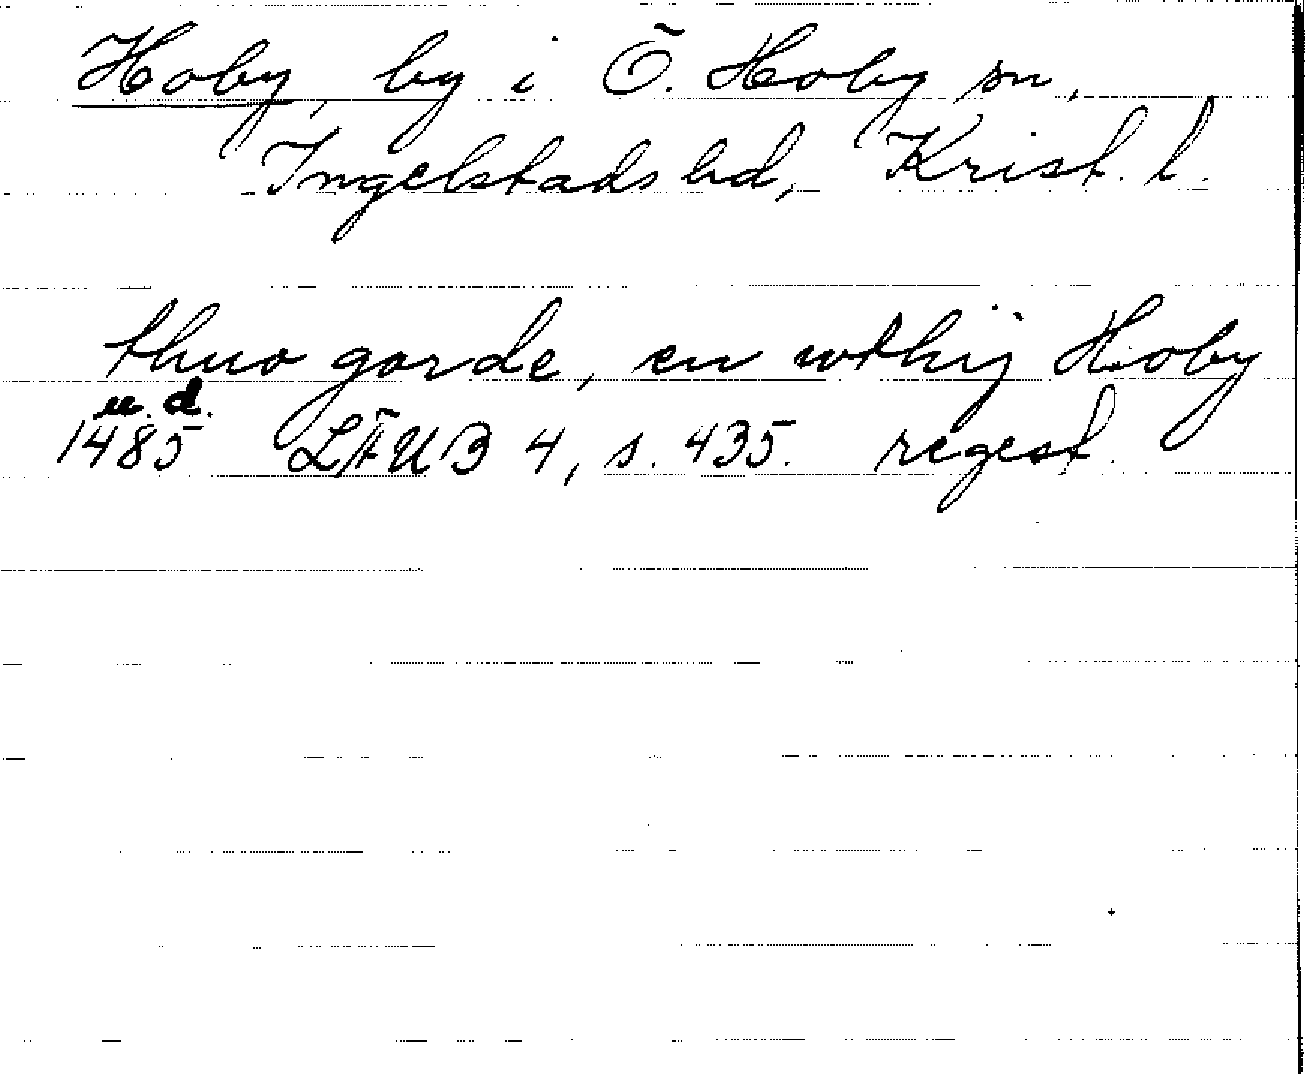 Hoby, by i Ö. Hoby sn,
Ingelstads hd, Krist. l.
thuo gorde, en wthij Hoby
u. d.
1485 LÄUB 4, s. 435. regest.